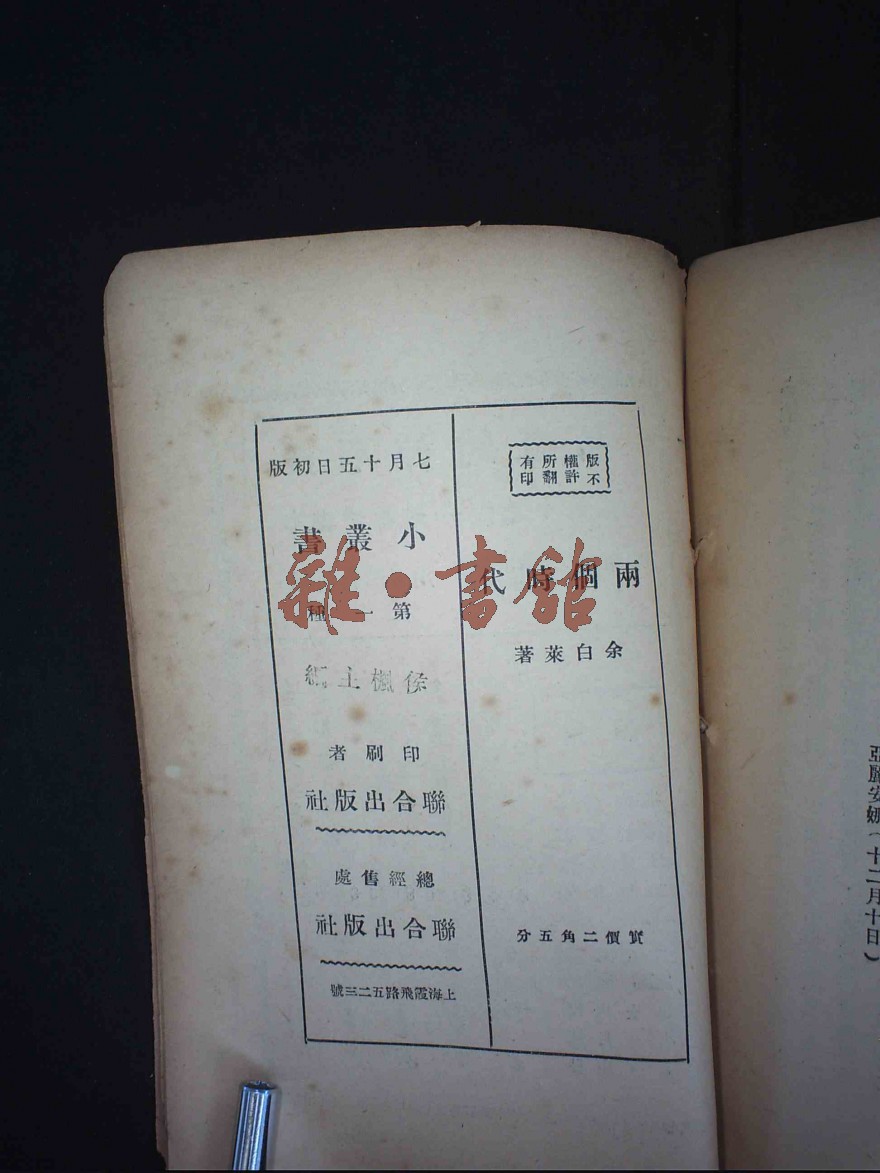 版權所有
不許翻印
兩個時代
余白萊著
實價二角五分
七月十五日初版
小叢書
第一種
侯楓主編
印刷者
聯合出版社
總經售處
聯合出版社
上海霞飛路五二三號
雜·書館
亞麗安娜（十二月十日）